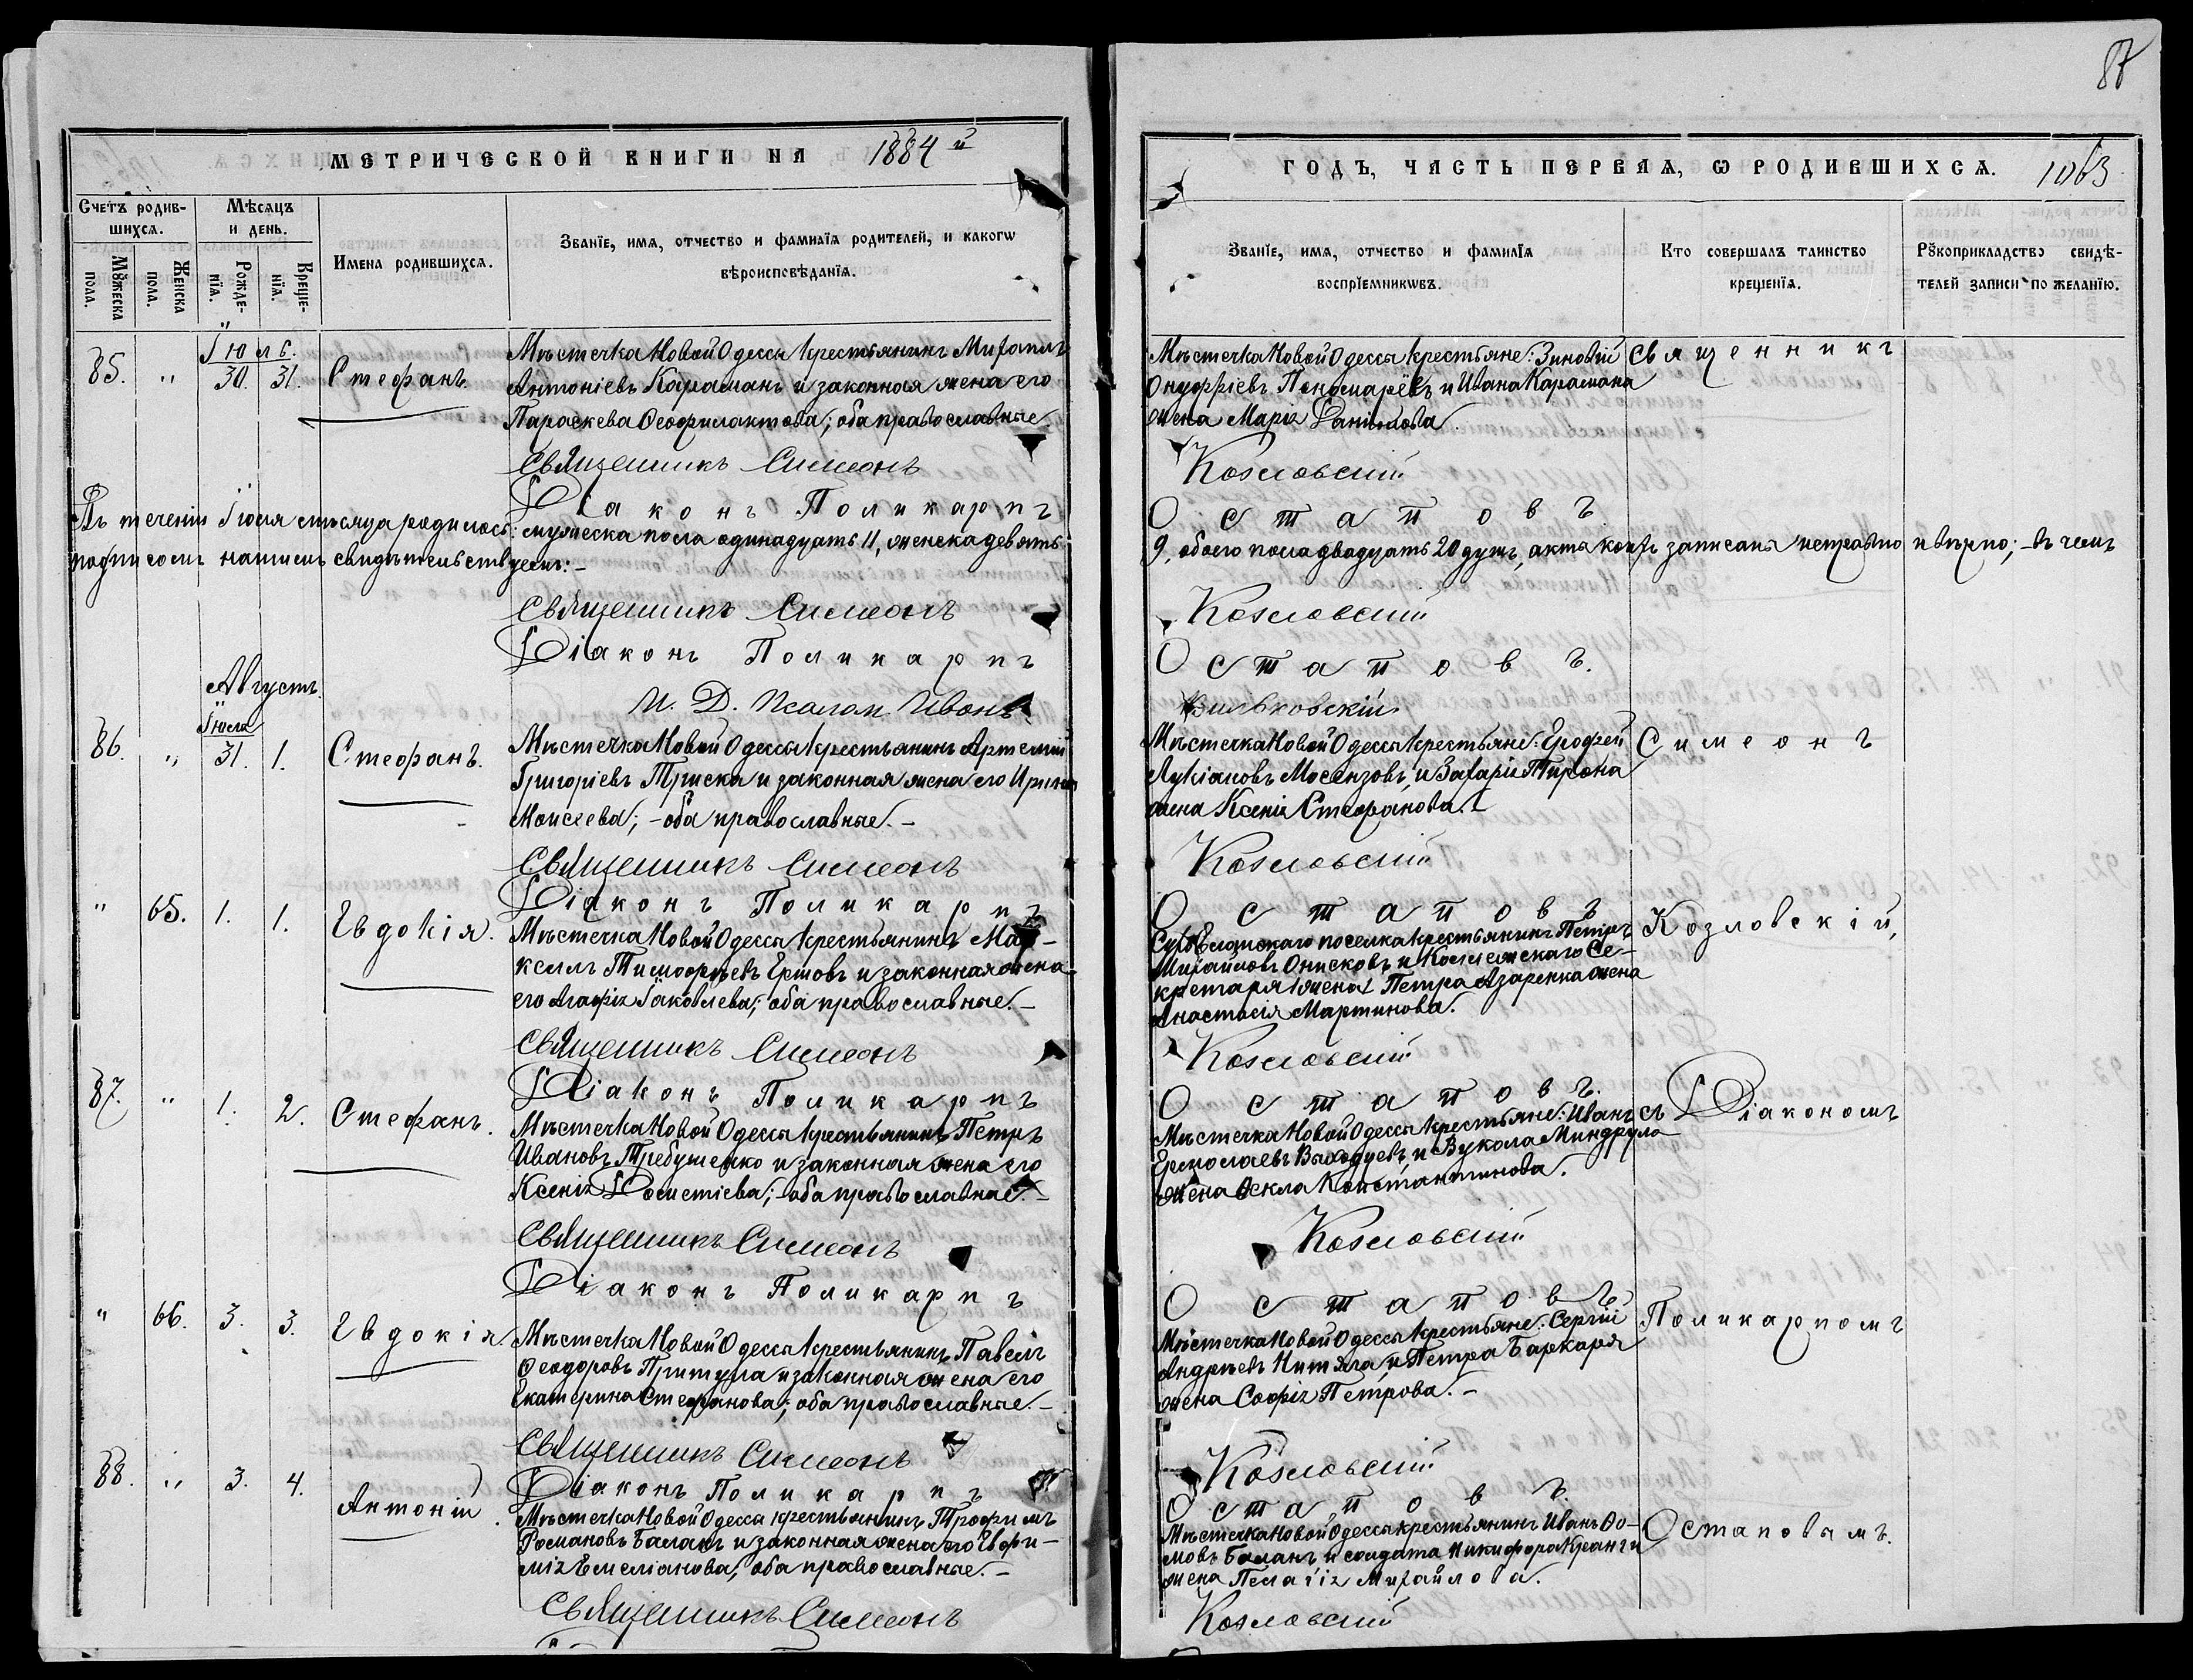 МЕТРИЧЕСКОЙ КНИГИ НА 1884 й
Счетъ родившихся.
Мѣсяцъ и день.
Имена родившихся.
Званїе, имя, отчество и фамилїя родителей, и какогѡ вѣроисповѣданїя.
Мꙋжеска пола.
Женска пола.
Рожденїя.
Крещенїя.
Іюль.
85. " 30. 31. Стефанъ.
Мѣстечка Новой Одессы крестьянинъ Михаилъ
Антоніевъ Караманъ и законная жена его
Параскева Ѳеофилактова; оба православные.
Священникъ Симеонъ
Діаконъ Поликарпъ
Въ теченіи Іюля мѣсяца родилось: мужеска пола одинадцать 11, женска девять
подписомъ нашимъ свидѣтельствуемъ: –
Священникъ Симеонъ
Діаконъ Поликарпъ
И. Д. Псалом. Иванъ
Августъ.
Іюля
86. " 31. 1. Стефанъ.
Мѣстечка Новой Одессы крестьянинъ Артемій
Григоріевъ Триска и законная жена его Ирина
Моисеева; – оба православные. –
Священникъ Симеонъ
Діаконъ Поликарпъ
" 65. 1. 1. Евдокія.
Мѣстечка Новой Одессы крестьянинъ Мар-
келлъ Тимофѣевъ Ершовъ и законная жена
его Агафія Іаковлева; оба православные. –
Священникъ Симеонъ
Діаконъ Поликарпъ
87. " 1. 2. Стефанъ.
Мѣстечка Новой Одессы крестьянинъ Петръ
Ивановъ Требушенко и законная жена его
Ксенія Дометіева; – оба православные. –
Священникъ Симеонъ
Діаконъ Поликарпъ
" 66. 3. 3. Евдокія.
Мѣстечка Новой Одессы крестьянинъ Павелъ
Ѳеодоровъ Притула и законная жена его
Екатерина Стефанова; оба православные. –
Священникъ Симеонъ
Діаконъ Поликарпъ
88. " 3. 4. Антоній.
Мѣстечка Новой Одессы крестьянинъ Трофимъ
Романовъ Баланъ и законная жена его Евфи-
мія Емеліанова; оба православные. –
Священникъ Симеонъ
87
ГОДЪ, ЧАСТЬ ПЕРВАЯ, Ѡ РОДИВШИХСЯ. 1063
Званїе, имя, отчество и фамилїя воспрїемникѡвъ.
Кто совершалъ таинство крещенїя.
Рꙋкоприкладство свидѣтелей записи по желанїю.
Мѣстечка Новой Одессы крестьяне: Зиновій
Онуфріевъ Пономарёвъ и Ивана Карамана
жена Марія Даніилова.
Священникъ
Козловскій
Остаповъ.
9, обоего пола двадцать 20 душъ, акты коихъ записаны исправно и вѣрно; – въ чемъ
Козловскій
Остаповъ.
Вильковскій
Мѣстечка Новой Одессы крестьяне: Ерофей
Лукіановъ Мосензовъ, и Захарія Пирона
жена Ксенія Стефанова. –
Симеонъ
Козловскій
Остаповъ
поселка крестьянинъ Петръ
Михайловъ Онисковъ и Коллежскаго Се-
кретаря Петра Азаренка жена
Анастасія Мартинова.
Козловскій,
Козловскій
Остаповъ.
Мѣстечка Новой Одессы крестьяне: Иванъ
Ермолаевъ и Вукола Миндрула
жена Ѳекла Константинова.
съ Діакономъ
Козловскій
Остаповъ
Мѣстечка Новой Одессы крестьяне: Сергій
Андреевъ Нитяга, и Петра Баркаря
жена Софія Петрова. –
Поликарпомъ
Козловскій
Остаповъ.
Мѣстечка Новой Одессы крестьянинъ Иванъ Ѳо-
мовъ Баланъ и солдата Никифора
жена Пелагія Михайлова.
Остаповымъ.
Козловскій